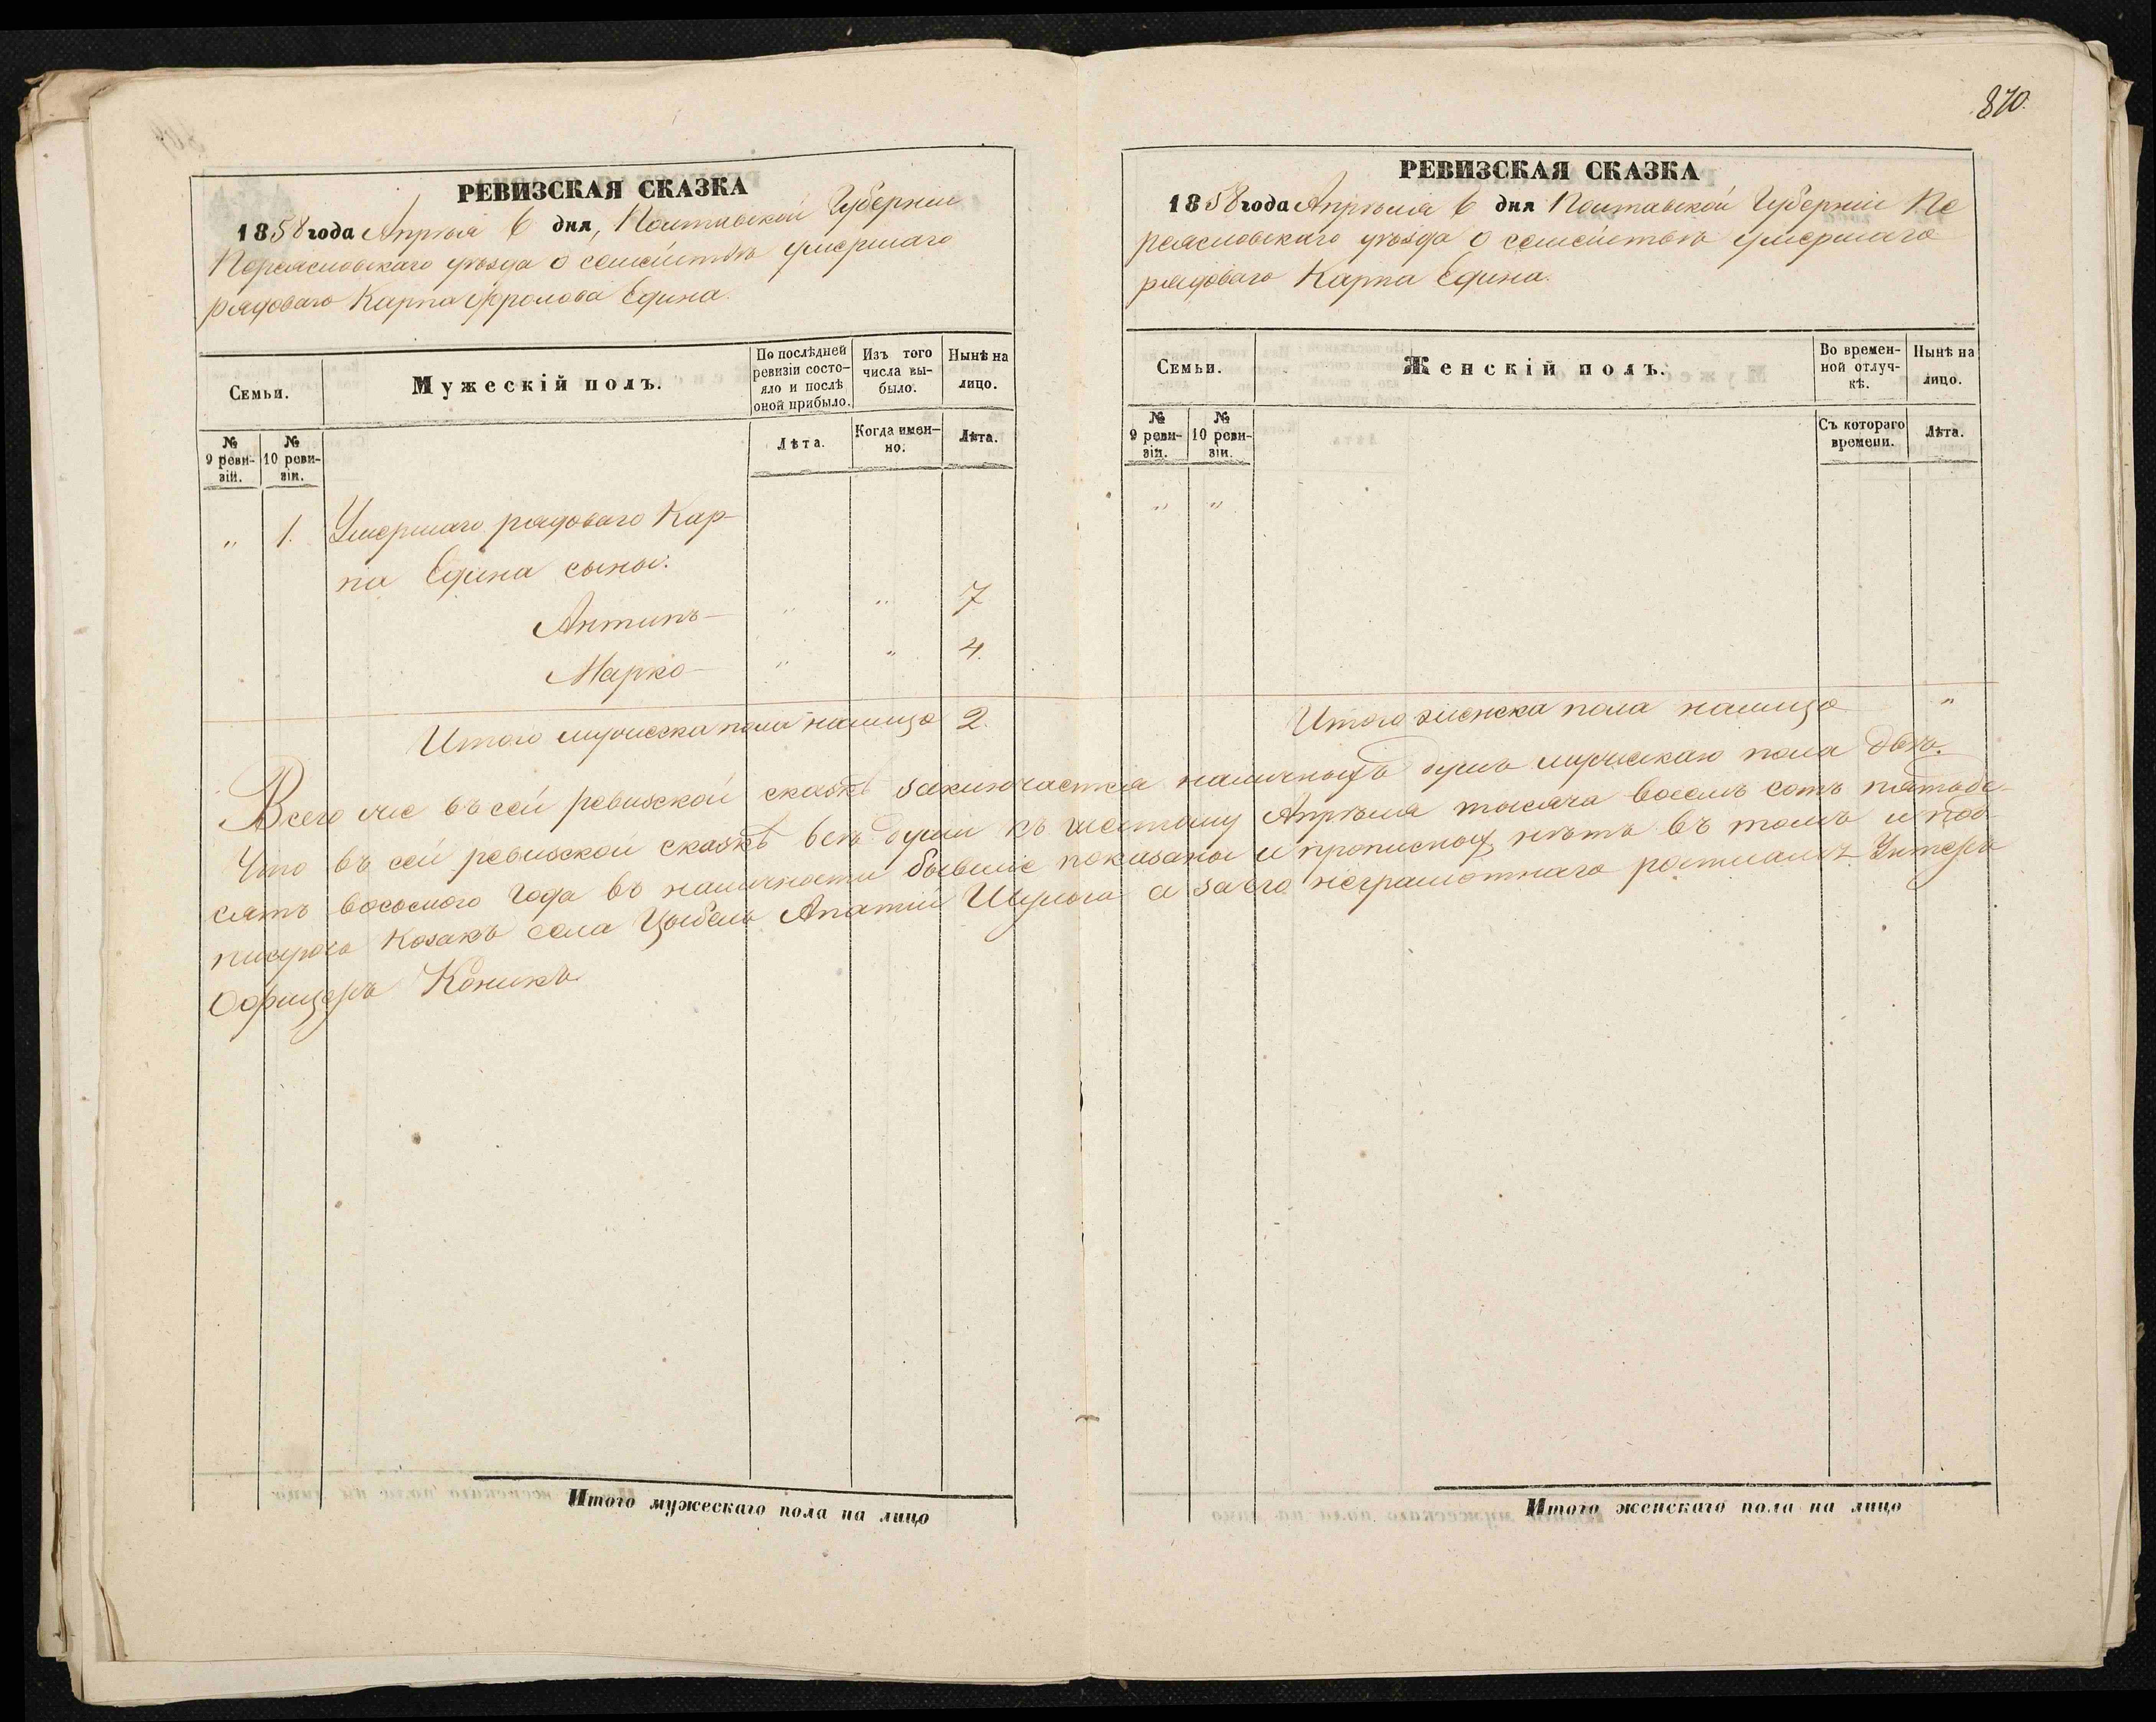 870.
РЕВИЗСКАЯ СКАЗКА
1858 года Апрѣля 6 дня, Полтавской Губерніи
Переясловскаго уѣзда о семействѣ умершаго
рядоваго Карпа Фролова Едина.
Семьи.
Мужескій полъ.
По послѣдней
ревизіи состо-
яло и послѣ
оной прибыло.
Изъ того
числа вы-
было.
Нынѣ на
лицо.
№
9 реви-
зіи.
№
10 реви-
зіи.
Лѣта.
Когда имен-
но.
Лѣта.
" 1. Умершаго рядоваго Кар-
па Едина сыны:
Антипъ— " " 7
Марко— " " 4.
Итого мужеска пола налицо 2.
РЕВИЗСКАЯ СКАЗКА
1858 года Апрѣля 6 дня Полтавской Губерніи Пе
реясловскаго уѣзда о семействѣ умершаго
рядоваго Карпа Едина.
Семьи.
Женскій полъ.
Во времен-
ной отлуч-
кѣ.
Нынѣ на
лицо.
№
9 реви-
зіи.
№
10 реви-
зіи.
Съ котораго
времени.
Лѣта.
" "
Итого женска пола налицо "
Всего же въ сей ревизской сказкѣ заключается наличныхъ душъ мужескаго пола двѣ.
Что въ сей ревизской сказкѣ всѣ души къ шестому Апрѣля тысяча восемъ сотъ пятьде-
сятъ восьмого года въ наличности бывшіе показаны и прописныхъ нѣтъ въ томъ и под-
писуюсь Козакъ села Цыбель а за его неграмотнаго росписался Унтеръ
Офицеръ Коникъ
Итого мужескаго пола на лицо
Итого женскаго пола на лицо